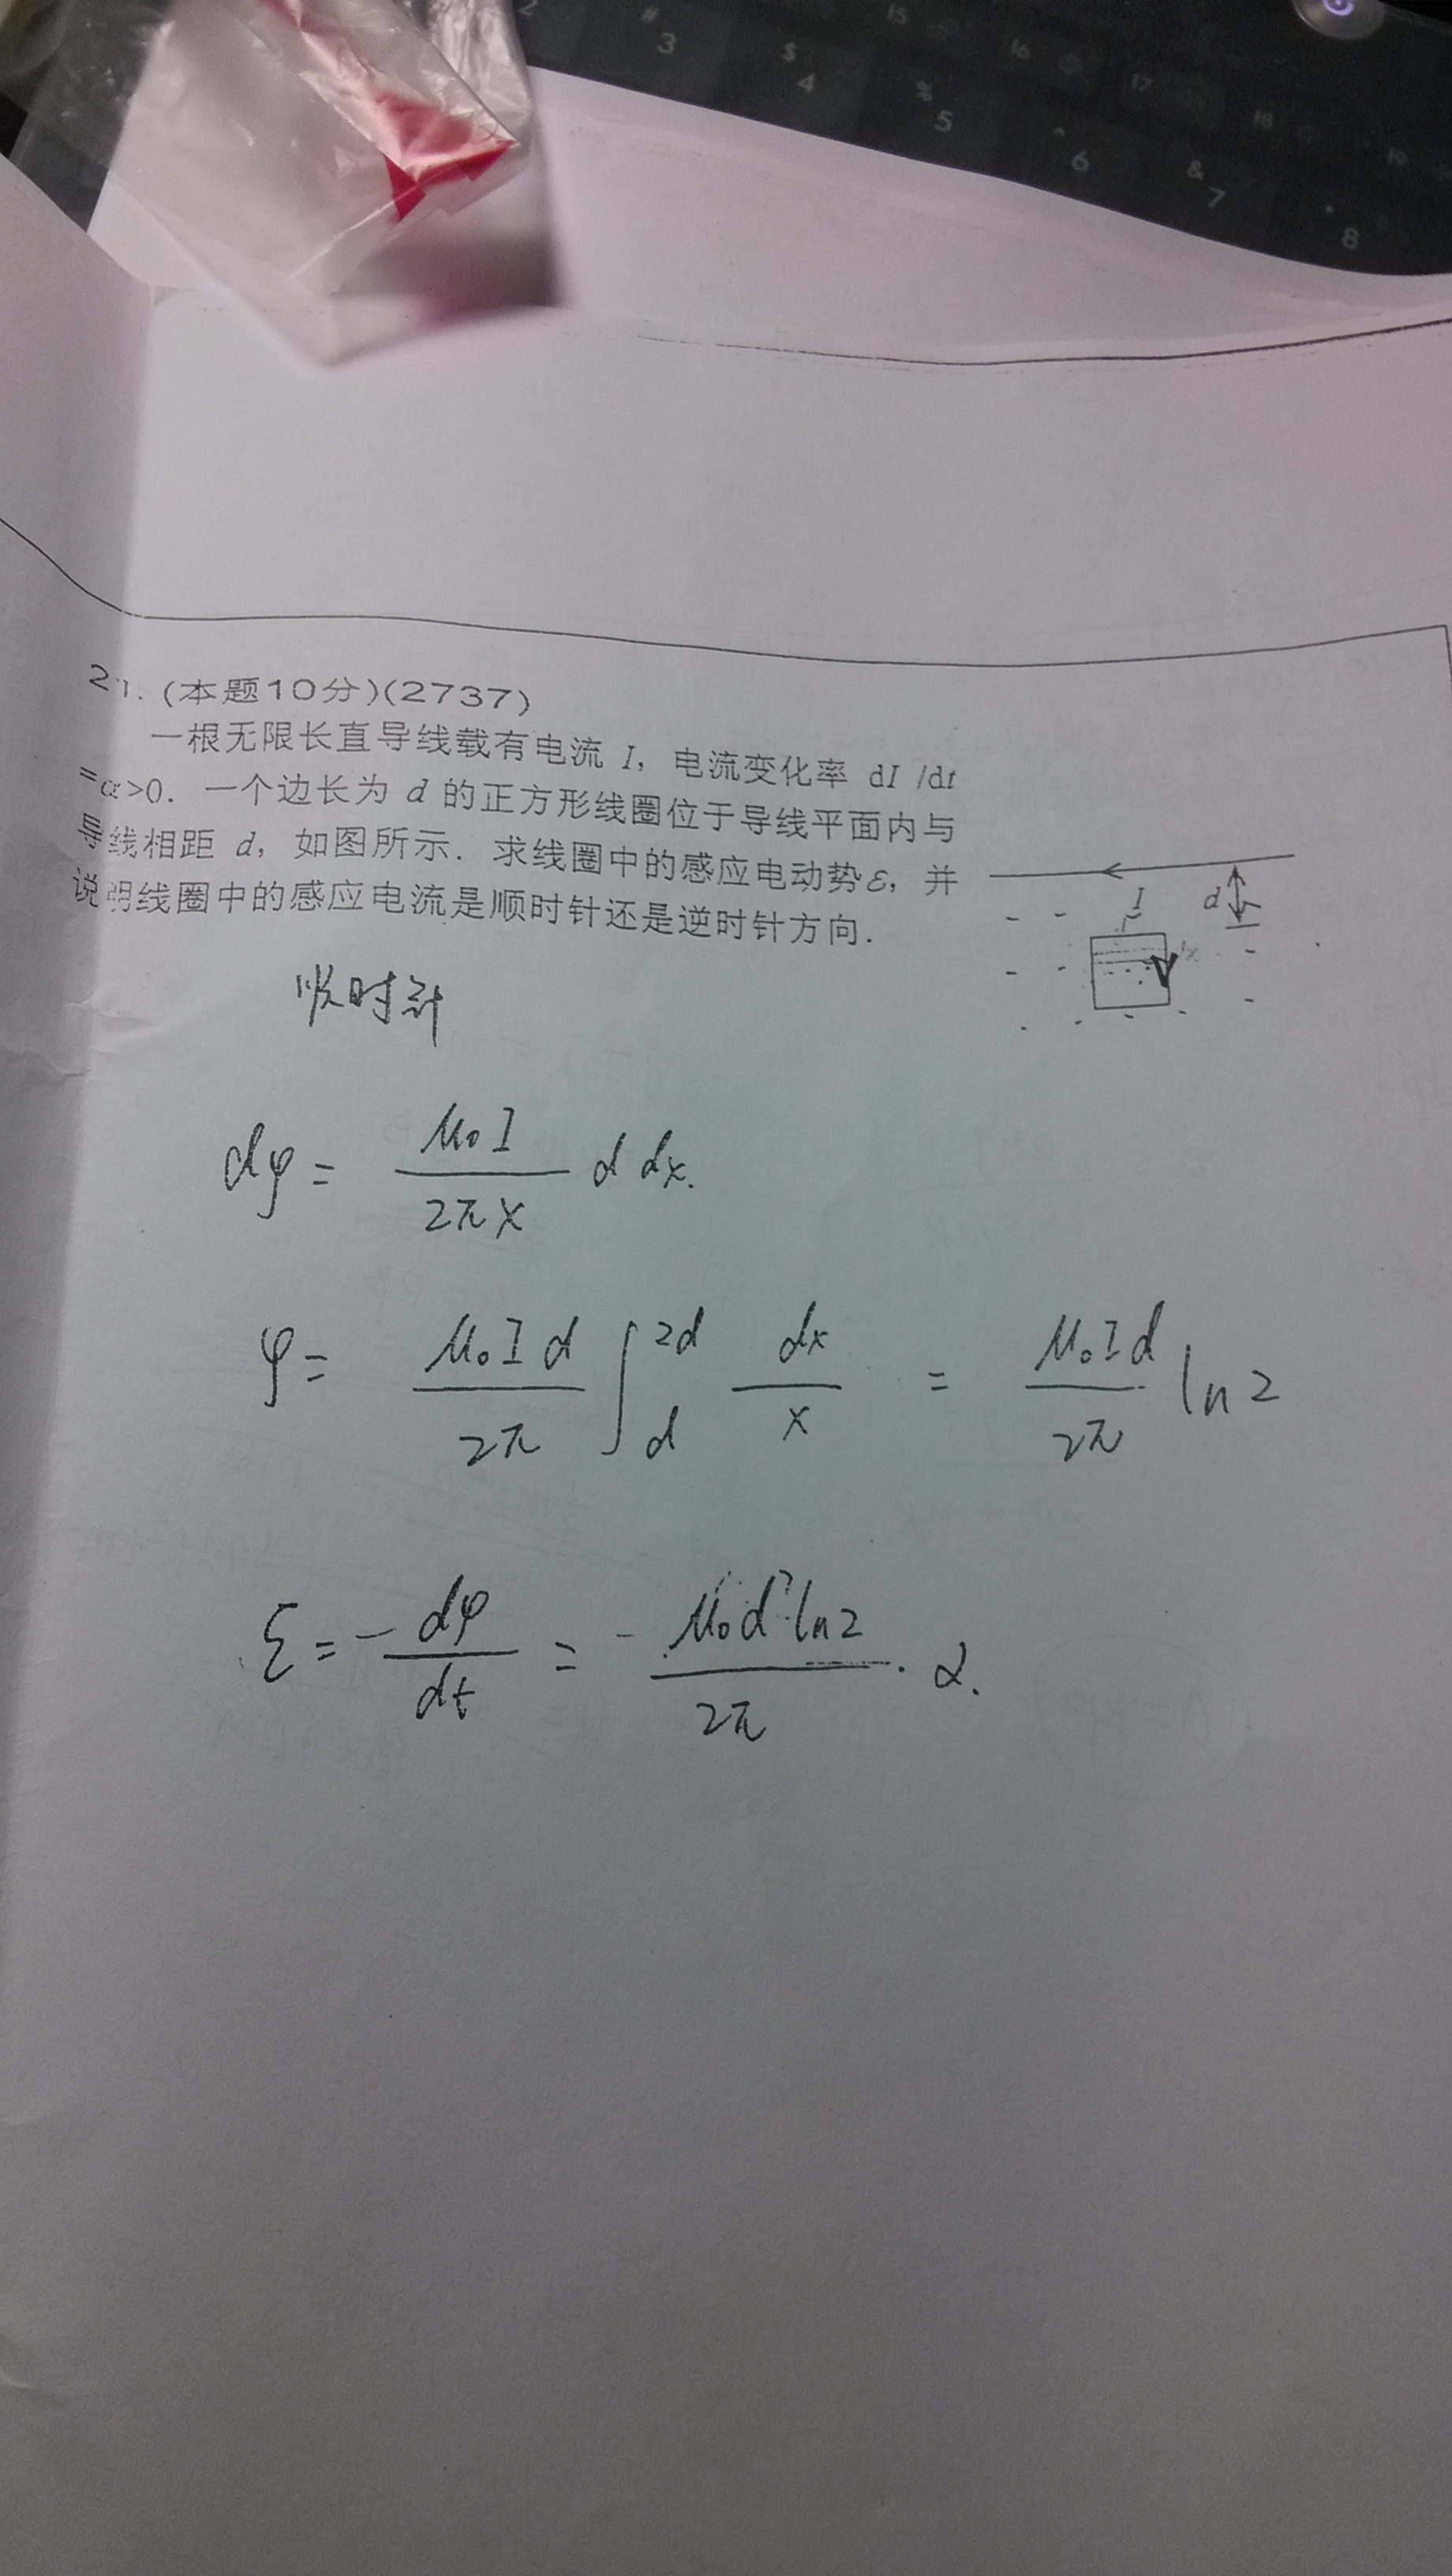 2
#
3
$
4
%
5
^
6
&
7
*
8
15
16
17
18
19
21. (本题10分)(2737)
一根无限长直导线载有电流 I, 电流变化率 dI /dt
=α>0. 一个边长为 d 的正方形线圈位于导线平面内与
导线相距 d, 如图所示. 求线圈中的感应电动势ε, 并
说明线圈中的感应电流是顺时针还是逆时针方向.
I
d
顺时针
dφ = μ₀I / 2πx d dx.
φ = μ₀Id / 2π ∫_d^2d dx / x = μ₀Id / 2π ln 2
ε = - dφ / dt = - μ₀d ln2 / 2π · α.